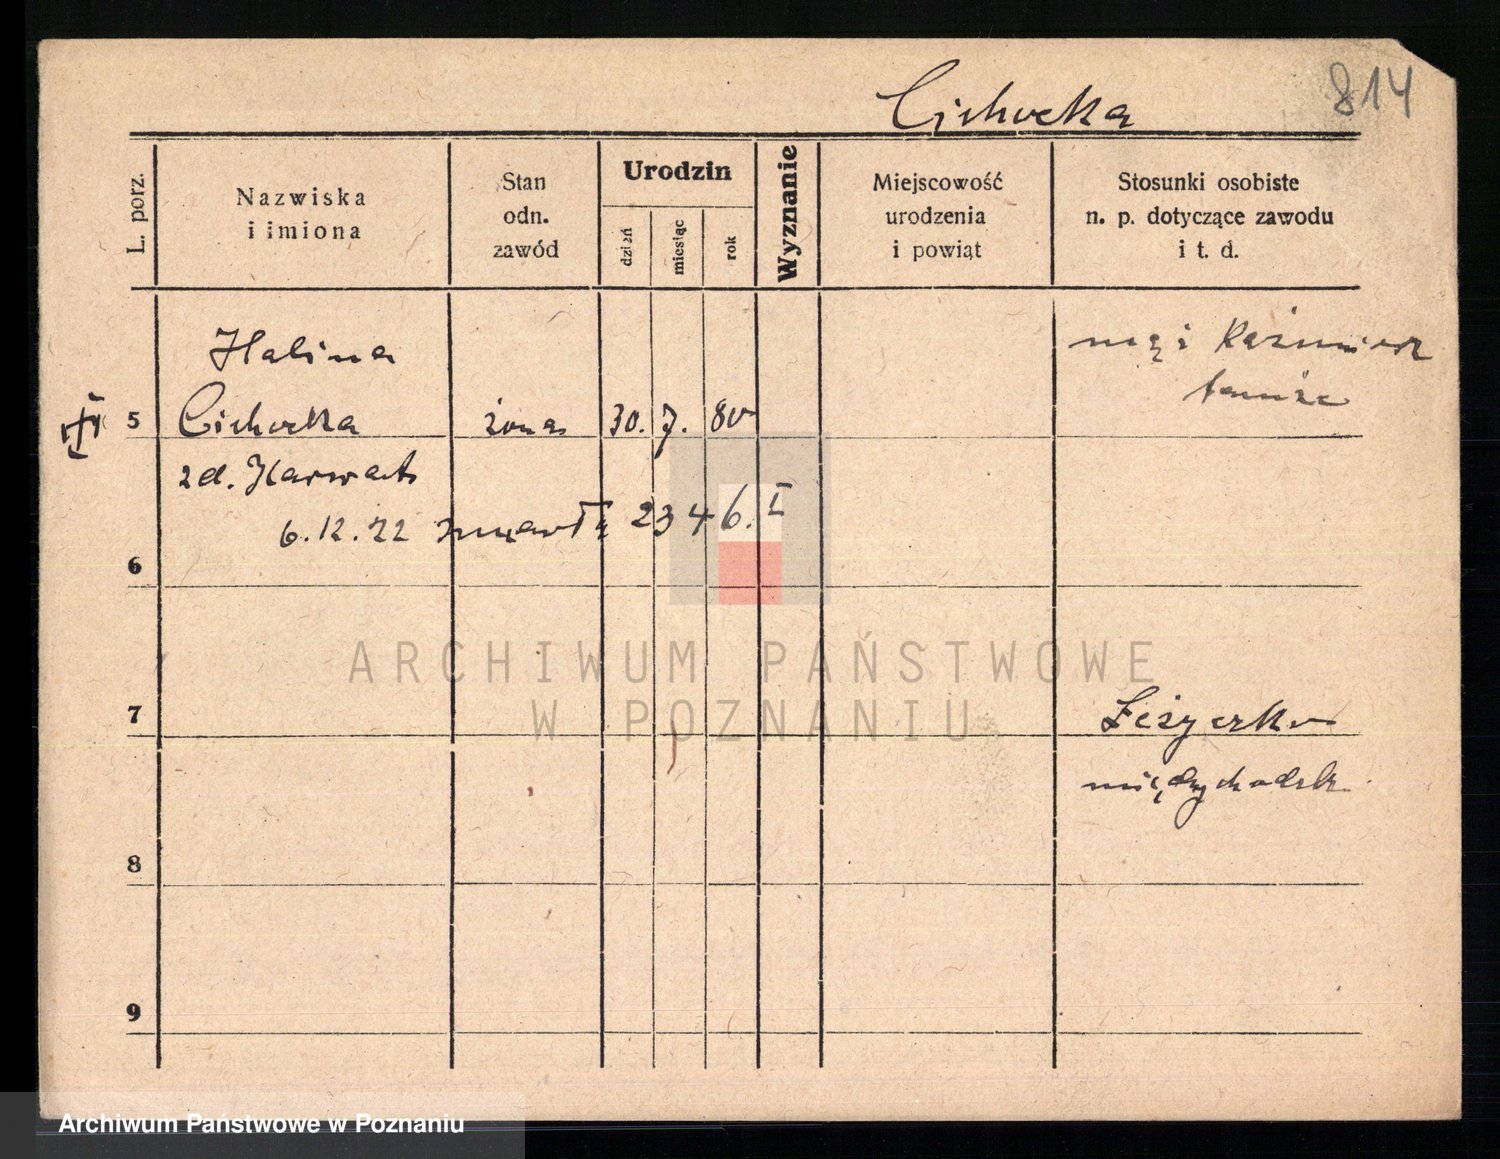 814
Cichocka
L. porz.
Nazwiska
i imiona
Stan
odn.
zawód
Urodzin
dzień
miesiąc
rok
Wyznanie
Miejscowość
urodzenia
i powiat
Stosunki osobiste
n. p. dotyczące zawodu
i t. d.
Halina
mąż Kaźmierz
tamże
5 Cichocka żona 30. 7. 80
zd. Harwart
6.12.22 zmarła 2346. I
6
7 Leżeczki
międzychodzki
8
9
ARCHIWUM PAŃSTWOWE
W POZNANIU
Archiwum Państwowe w Poznaniu